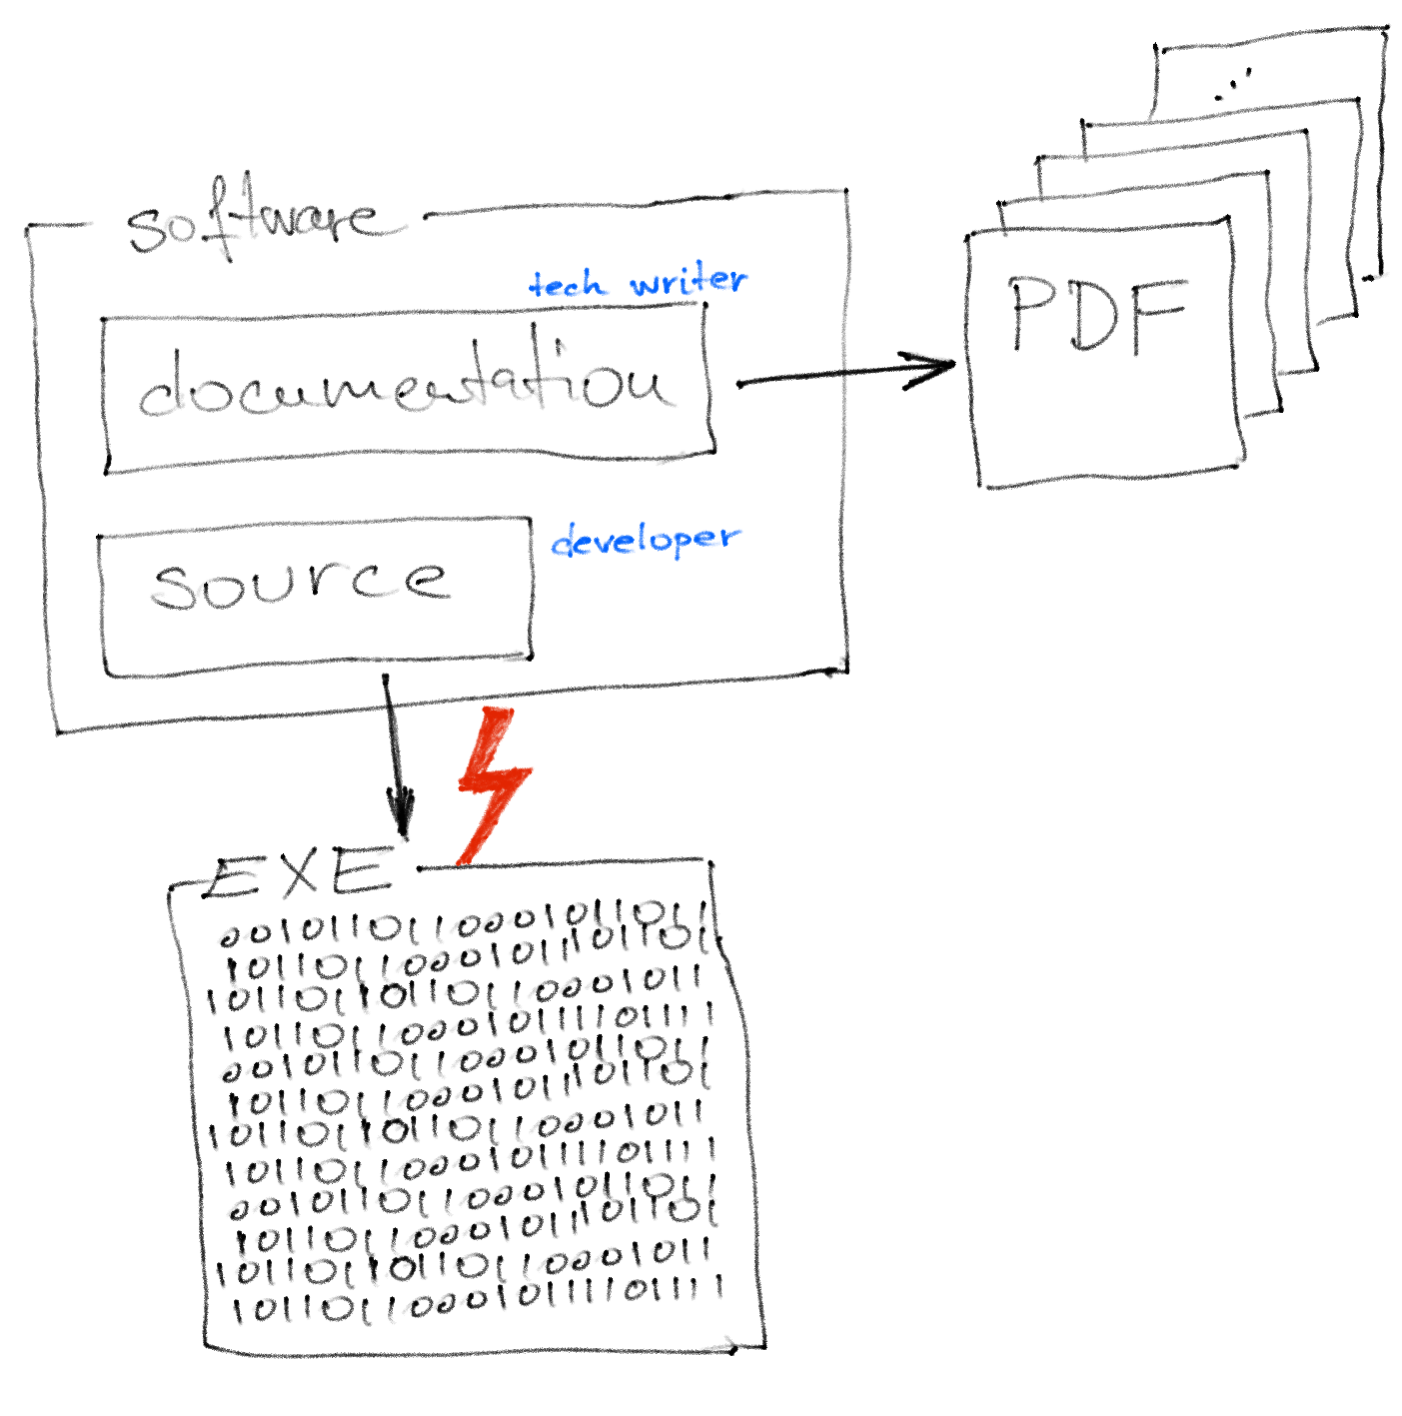 software
tech writer
documentation
PDF
developer
source
EXE
0010110110001011011
10110110001011101101
10110110110110001011
101101100010111101111
0010110110001011011
10110110001011101101
10110110110110001011
101101100010111101111
0010110110001011011
10110110001011101101
10110110110110001011
101101100010111101111